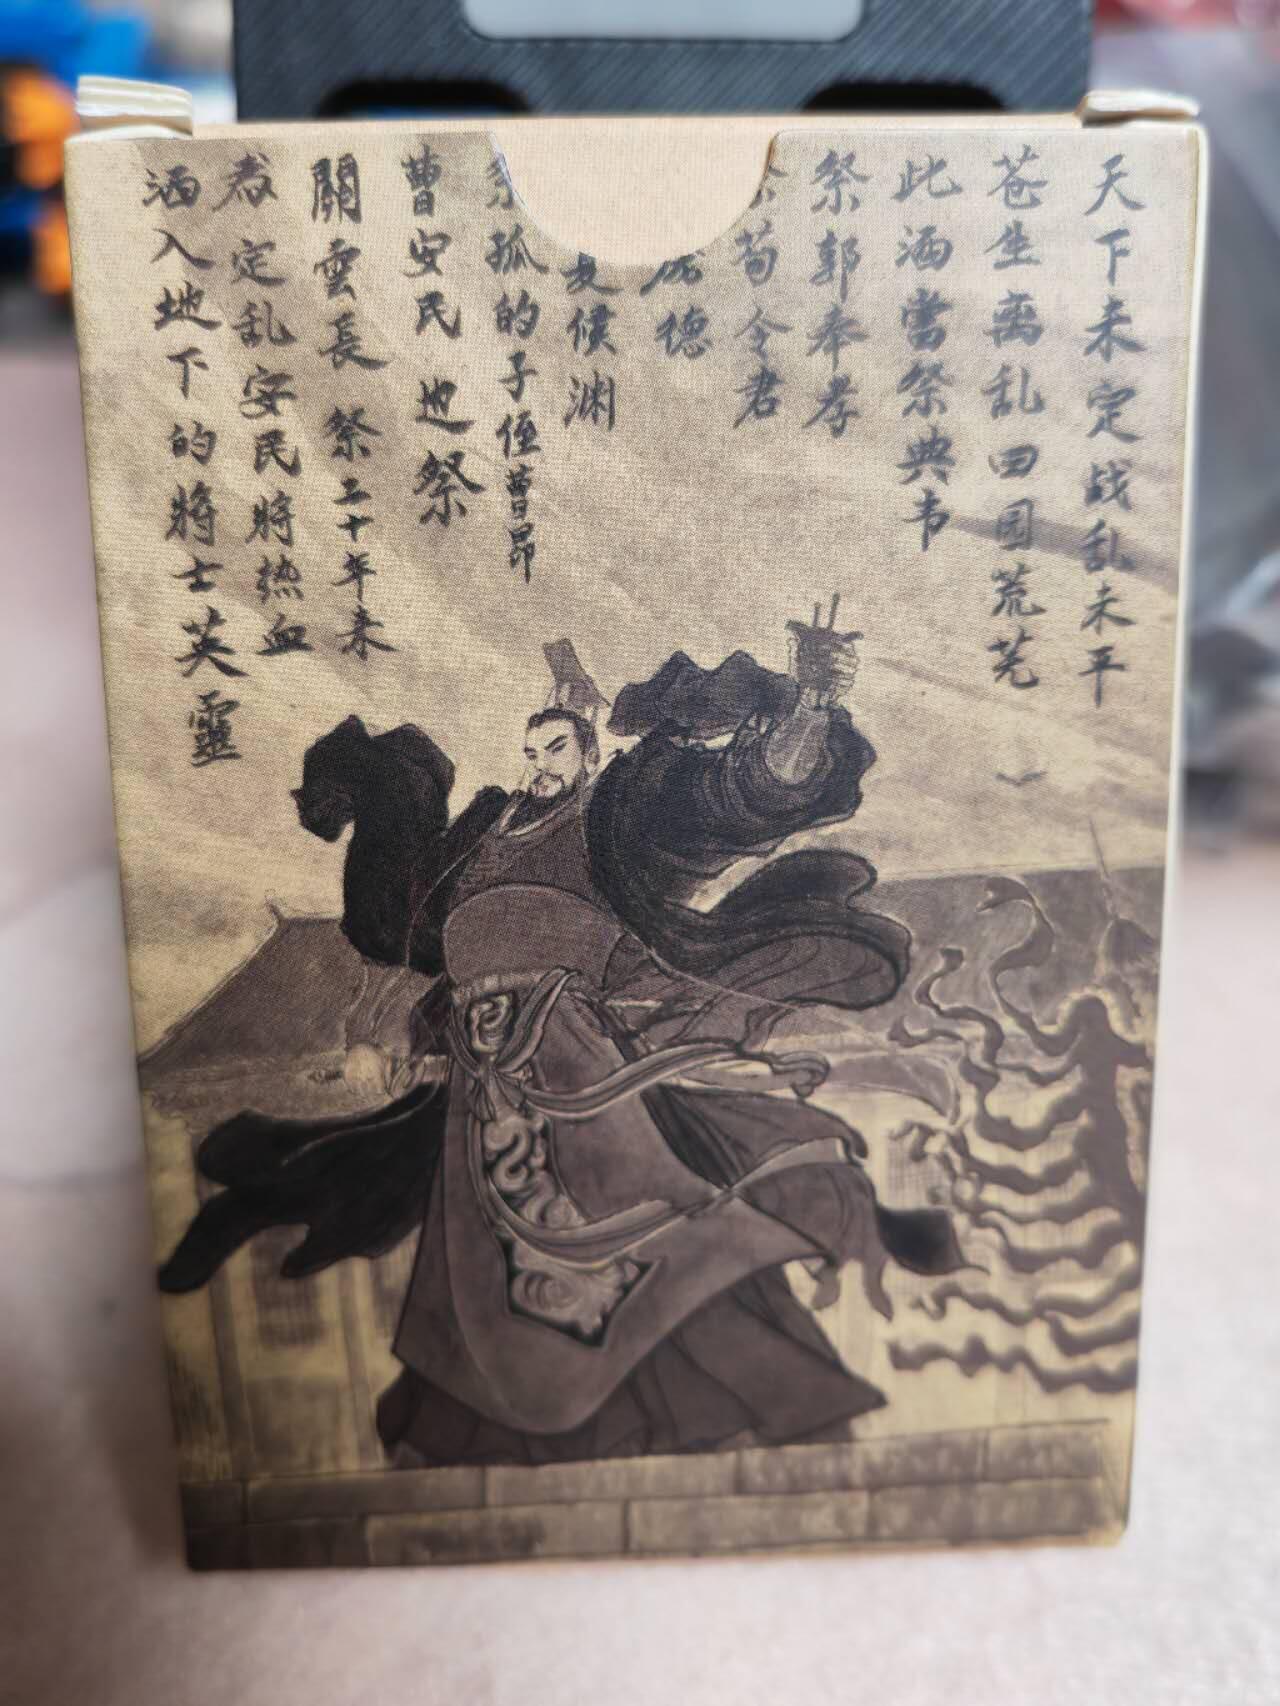 天下未定战乱未平
苍生离乱田园荒芜
此酒當祭典韦
祭郭奉孝
荀令君
德
侯渊
孤的子侄曹昂
曹安民 也祭
關雲長 祭二十年来
为定乱安民將热血
洒入地下的將士英靈